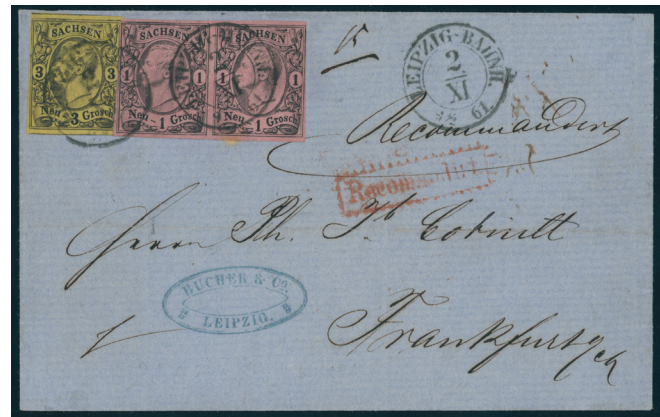 SACHSEN
3 3
Neu 3 Grosch
SACHSEN
1 1
Neu - 1 Grosch
SACHSEN
1 1
Neu - 1 Grosch
LEIPZIG-BAHNH.
2
XI
61
Recommandirt
Recommandirt
Herrn Ph. Jb.
BUCHER & Co.
LEIPZIG.
Frankfurt